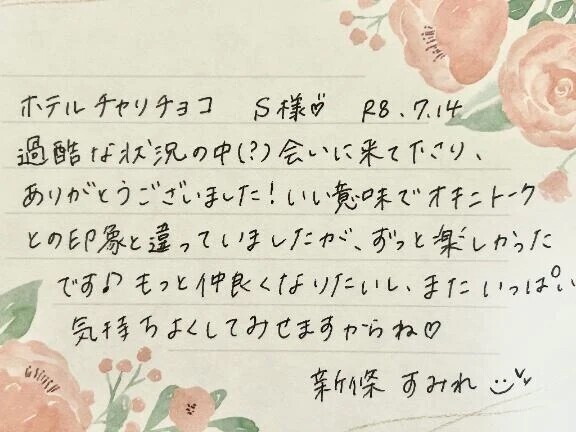 ホテルチャリチョコ S様♡ R8.7.14
過酷な状況の中(?)会いに来て下さり、
ありがとうございました！いい意味でオキニトーク
との印象と違っていましたが、ずっと楽しかった
です♪もっと仲良くなりたいし、またいっぱい
気持ちよくしてみせますからね♡
新條 すみれ